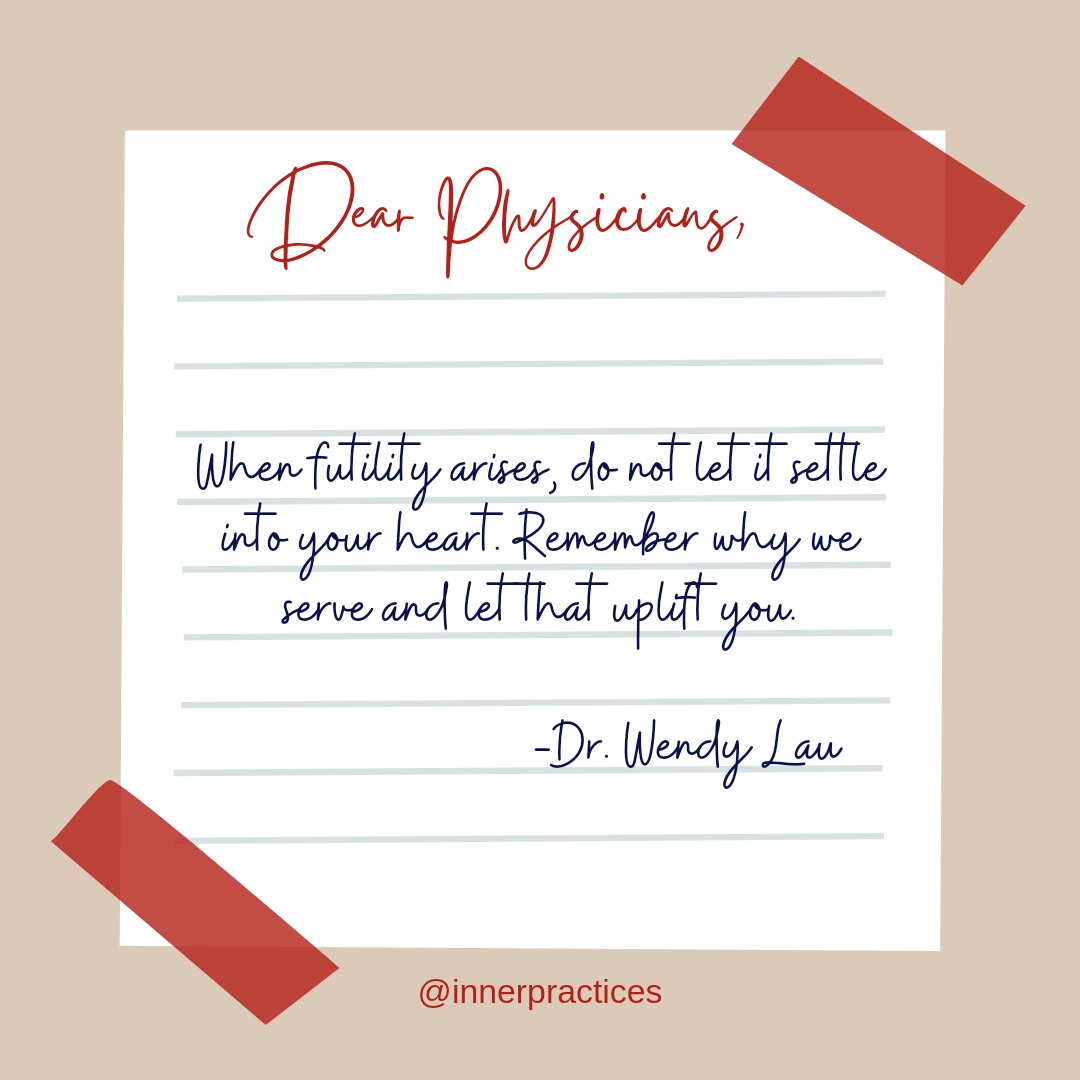 Dear Physicians,
When futility arises, do not let it settle
into your heart. Remember why we
serve and let that uplift you.
-Dr. Wendy Lau
@innerpractices